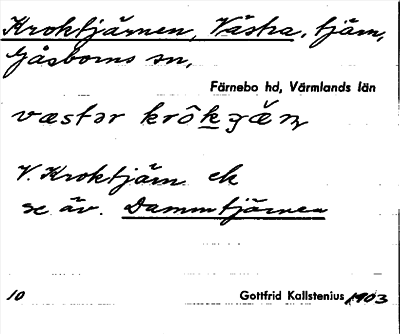 Kroktjärnen, Västra, tjärn,
Gåsborns sn,
Färnebo hd, Värmlands län
væstər krôk
V. Kroktjärn ek
se äv. Dammtjärnen
10 Gottfrid Kallstenius 1903